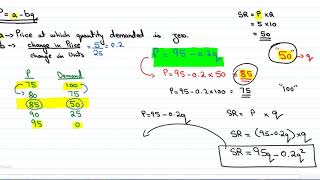 P = a - bq
a → Price at which quantity demanded is zero.
b → change in Price / change in Units = 5/25 = 0.2
P Demand
75 100
→ 80 75
85 50
90 25
95 0
P = 95 - 0.2q
P = 95 - 0.2 × 50 = 85
P = 95 - 0.2 × 100 = 75
P = 95 - 0.2q
SR = P × Q
= 5 × 10
= 50
"50" → q
"100"
SR = P × q
SR = (95 - 0.2q) × q
SR = 95q - 0.2q²